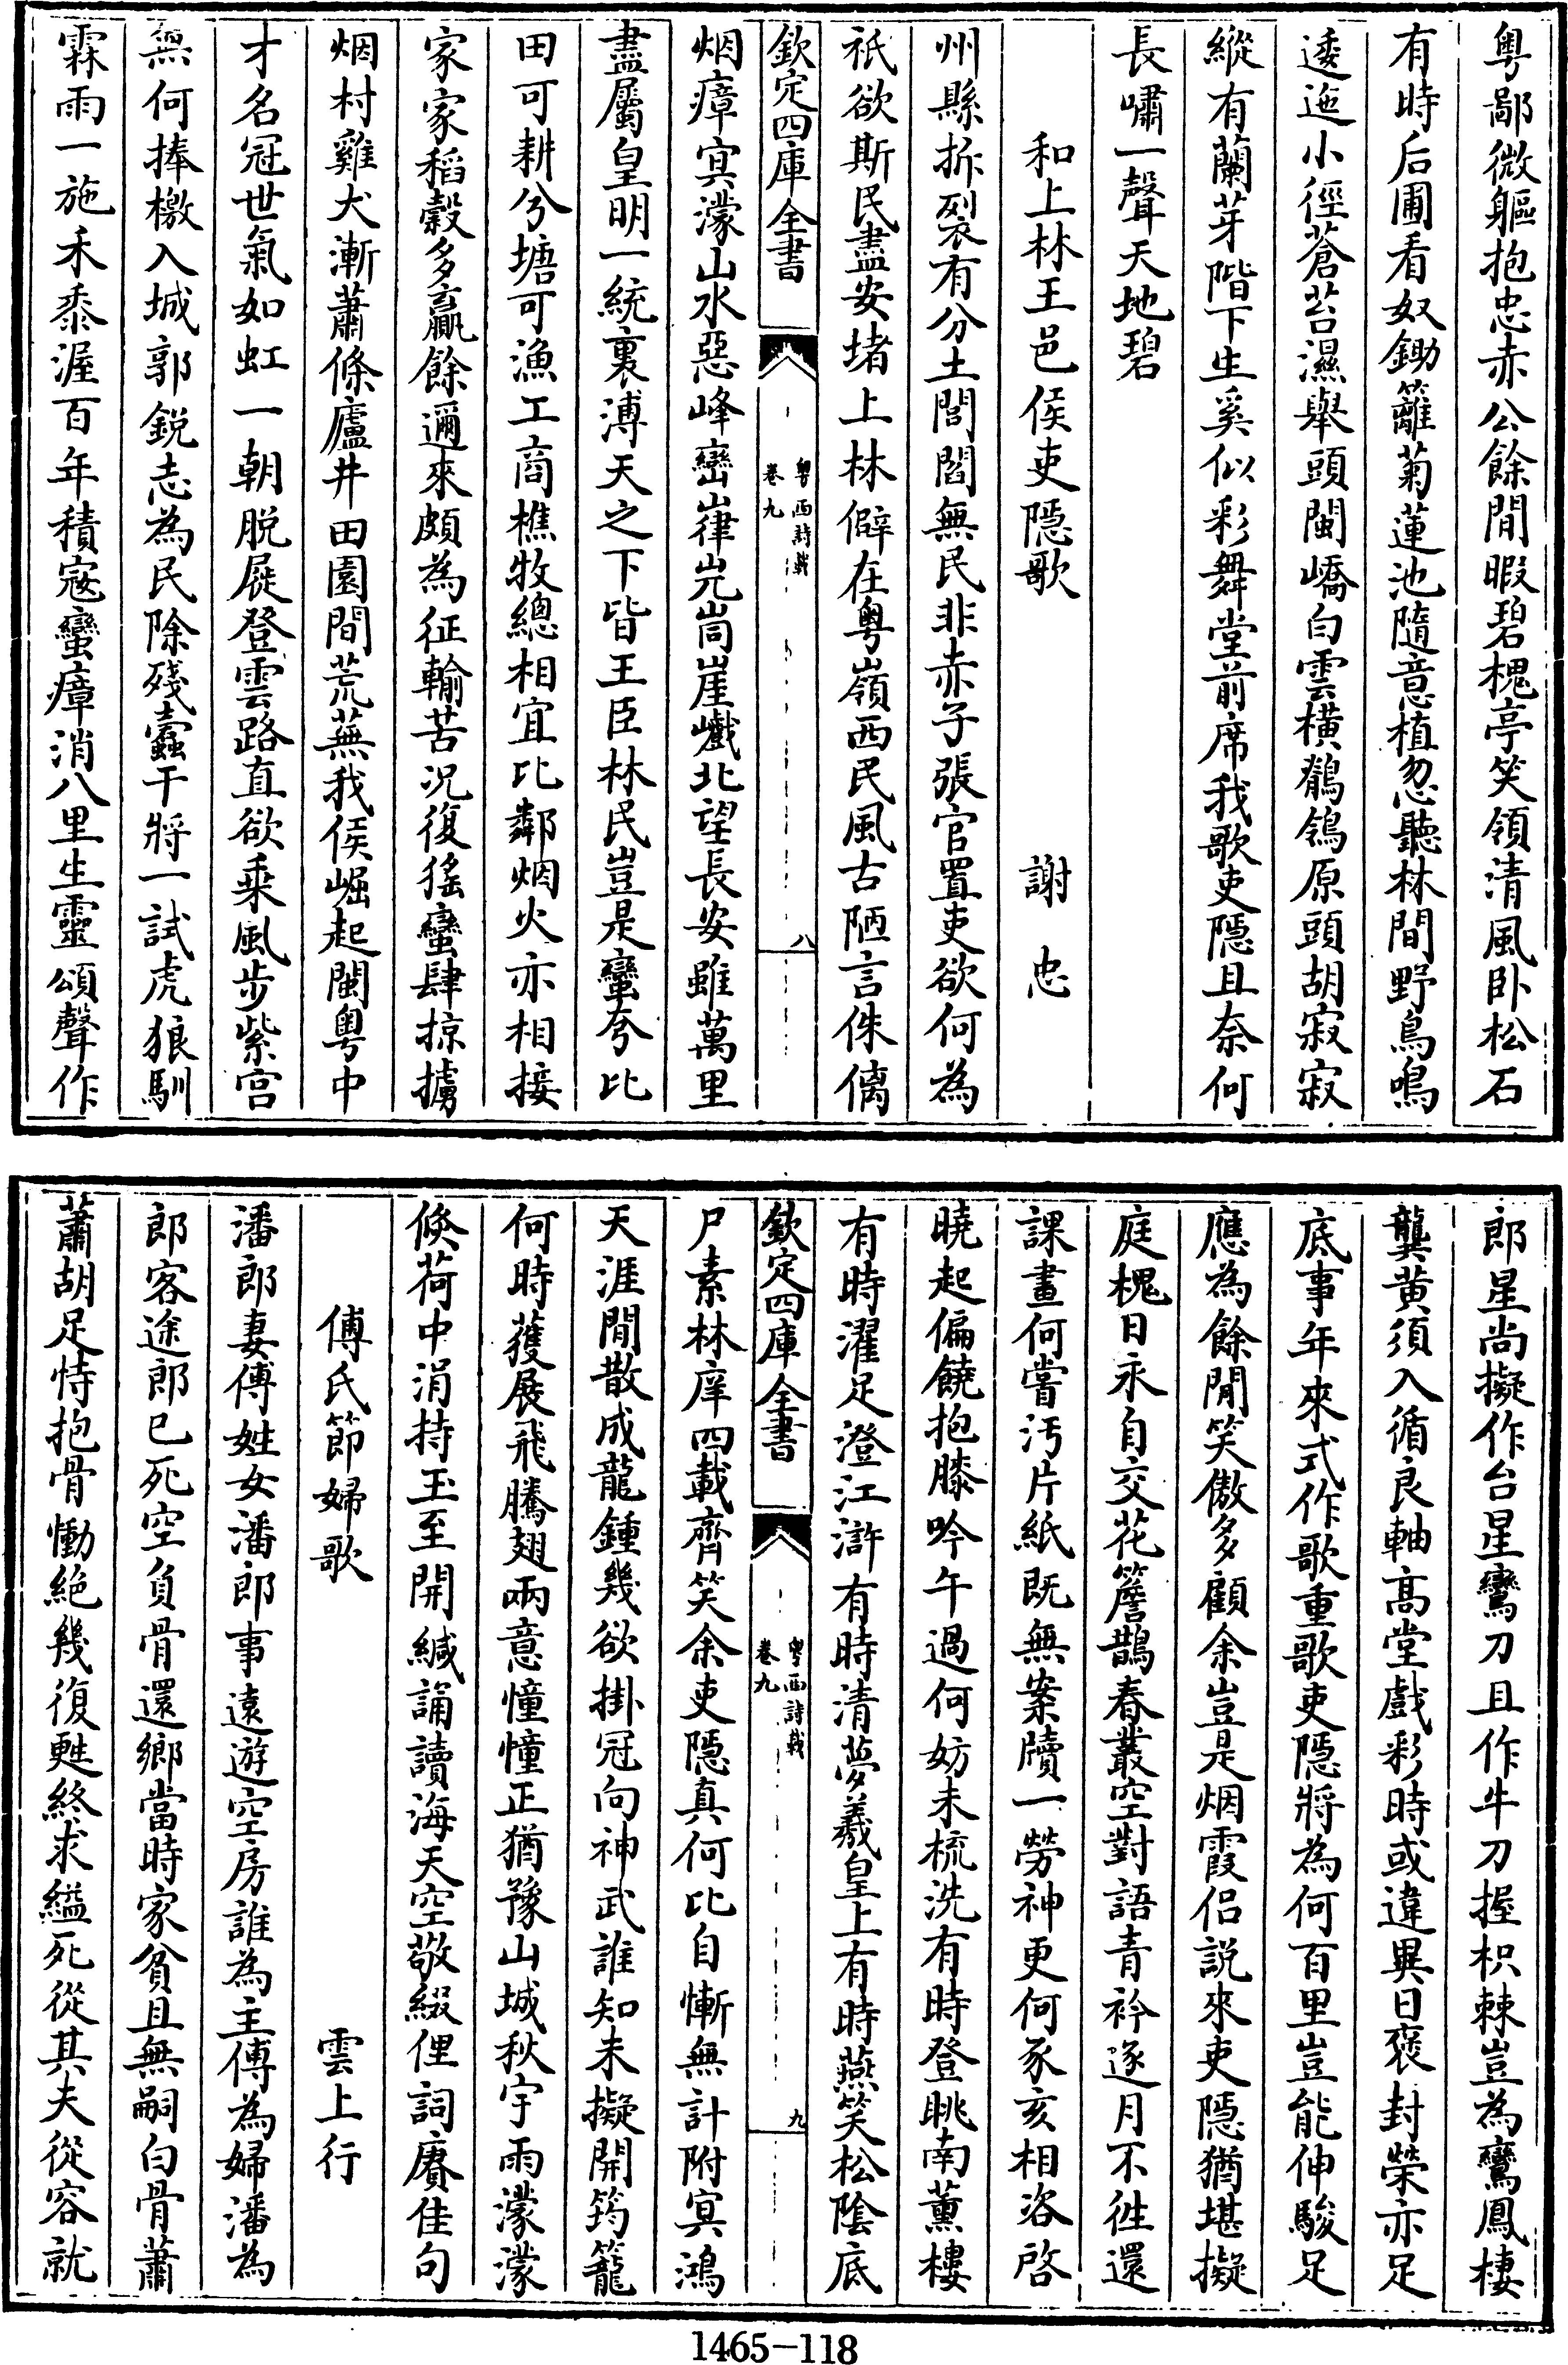 粤鄙微軀抱忠赤公餘閒暇碧槐亭笑領清風卧松石
有時后圃看奴鋤籬菊蓮池隨意植忽聽林間野鳥鳴
逶迤小徑蒼苔濕舉頭閩嶠白雲橫鶺鴒原頭胡寂寂
縱有蘭芽階下生奚似彩舞堂前席我歌吏隠且奈何
長嘯一聲天地碧
和上林王邑侯吏隠歌 謝忠
州縣拆裂有分土閭閻無民非赤子張官置吏欲何為
祇欲斯民盡安堵上林僻在粤嶺西民風古陋言侏㒧
欽定四庫全書
粤西詩載
卷九
八
烟瘴㝠濛山水惡峰巒嵂屼崗崖巇北望長安雖萬里
盡屬皇明一統裏溥天之下皆王臣林民豈是蠻夸比
田可耕兮塘可漁工商樵牧總相宜比鄰烟火亦相接
家家稻穀多贏餘邇來頗為征輸苦况復猺蠻肆掠擄
烟村雞犬漸蕭條廬井田園間荒蕪我侯崛起閩粤中
才名冠世氣如虹一朝脱屣登雲路直欲乗風步紫宫
無何捧檄入城郭鋭志為民除殘蠹干將一試虎狼馴
霖雨一施禾黍渥百年積寇蠻瘴消八里生靈頌聲作
郎星尚擬作台星鸞刀且作牛刀握枳棘豈為鸞鳳棲
龔黄須入循良軸髙堂戲彩時或違異日褒封榮亦足
底事年來式作歌重歌吏隠將為何百里豈能伸駿足
應為餘閒笑傲多顧余豈是烟霞侣説來吏隠猶堪擬
庭槐日永自交花簷鵲春叢空對語青衿逐月不徃還
課畫何嘗汚片紙既無案牘一勞神更何豕亥相洛啓
曉起偏饒抱膝吟午過何妨未梳洗有時登眺南薫樓
有時濯足澄江滸有時清夢羲皇上有時燕笑松隂底
欽定四庫全書
粤西詩載
卷九
九
尸素林庠四載齊笑余吏隠真何比自慚無計附㝠鴻
天涯閒散成龍鍾幾欲掛冠向神武誰知未擬開筠籠
何時蒦展飛騰翅兩意憧憧正猶豫山城秋宇雨濛濛
倏荷中涓持玉至開緘誦讀海天空敬綴俚詞賡佳句
傅氏節婦歌 雲上行
潘郎妻傅姓女潘郎事遠遊空房誰為主傅為婦潘為
郎客途郎已死空負骨還鄉當時家貧且無嗣白骨蕭
蕭胡足恃抱骨慟絶幾復甦終求縊死從其夫從容就
1465-118